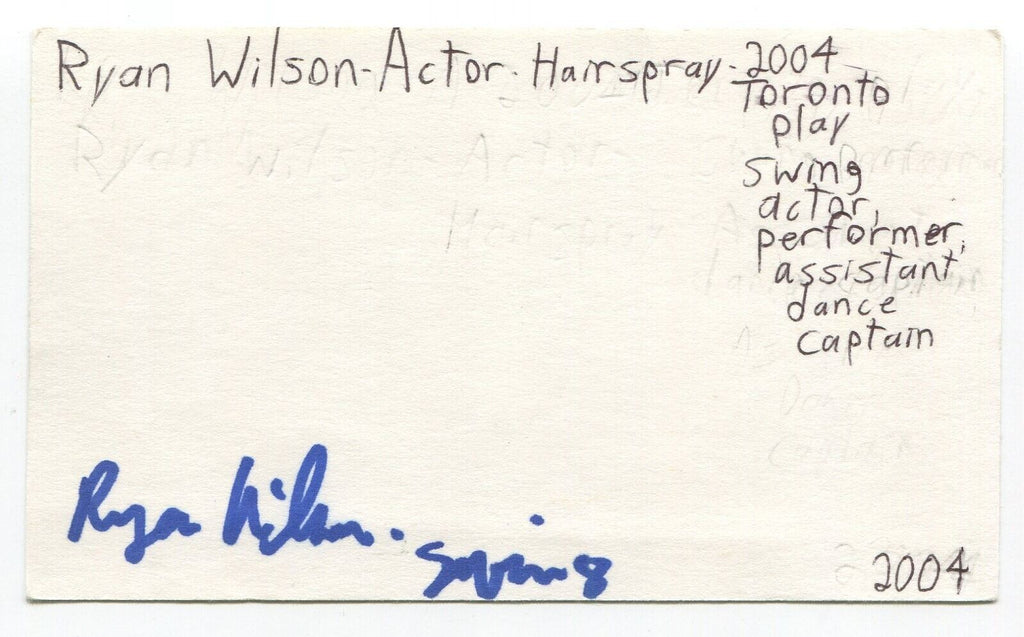 Ryan Wilson-Actor-Hairspray-2004
Toronto
play
swing
actor,
performer,
assistant
dance
captain
Ryan Wilson.
Swing
2004